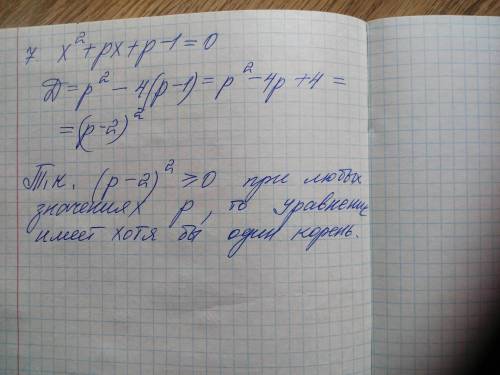 7 x² + px + p - 1 = 0
Д = p² - 4(p - 1) = p² - 4p + 4 =
= (p - 2)²
Т.к. (p - 2)² ≥ 0 при любых
значениях p, то уравнение
имеет хотя бы один корень.